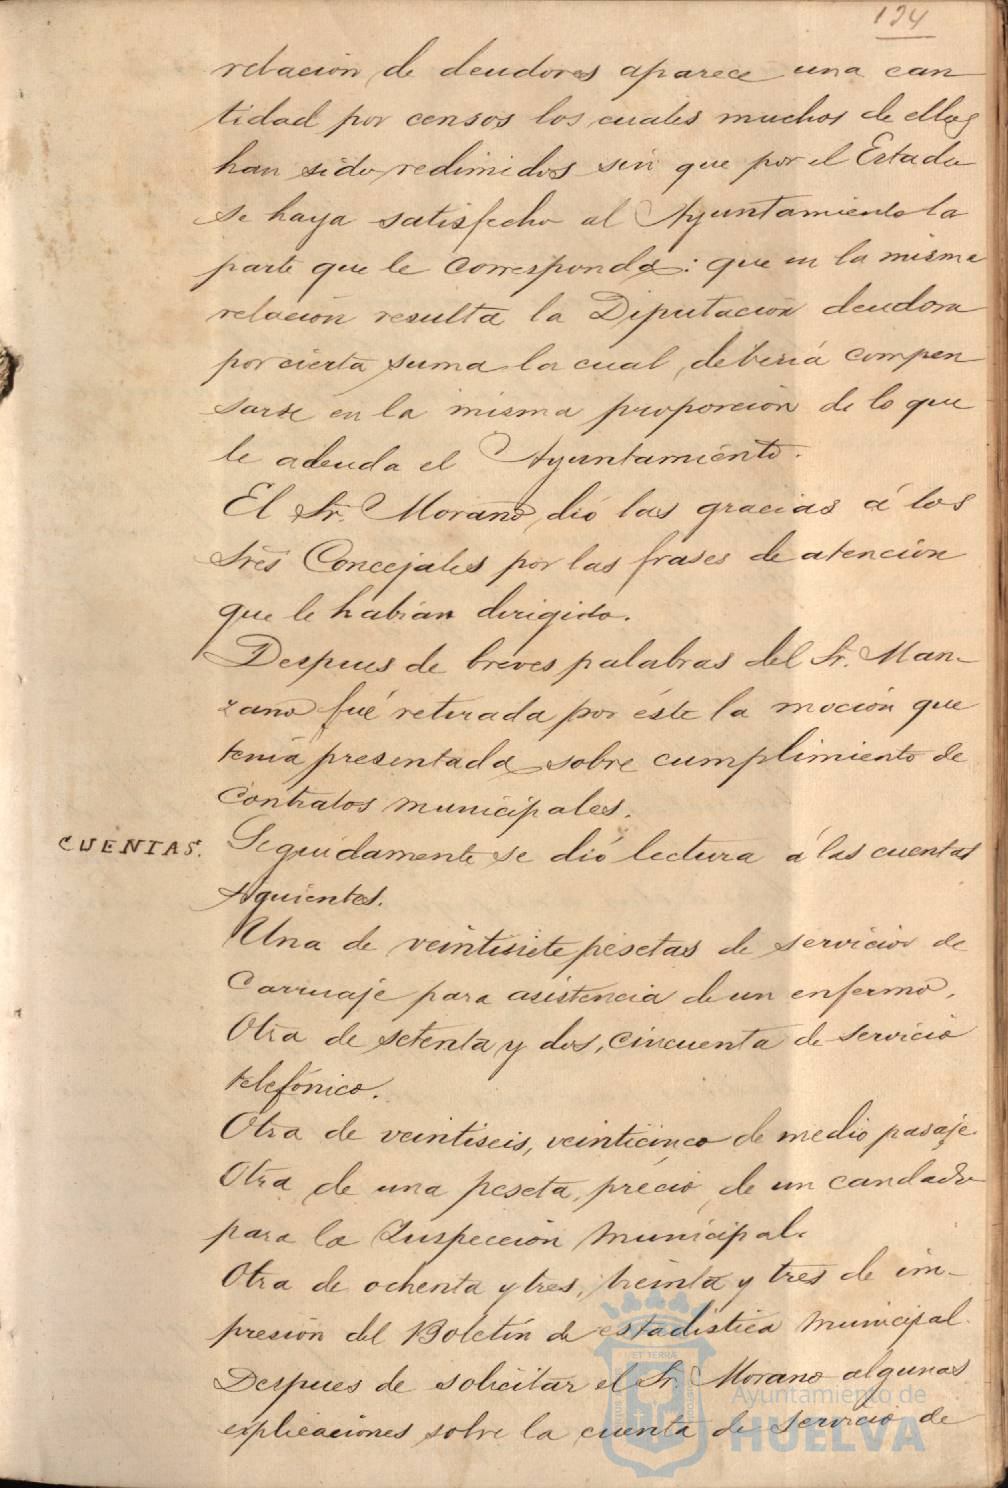 124
relacion de deudores aparece una can
tidad por censos los cuales muchos de ellos
han sido redimidos sin que por el Estado
se haya satisfecho al Ayuntamiento la
parte que le corresponda: que en la misma
relación resulta la Diputación deudora
por cierta suma la cual debería compen
sarse en la misma proporción de lo que
le adeuda el Ayuntamiento.
El Sr. Morano dió las gracias á los
Sres Concejales por las frases de atención
que le habian dirigido.
Despues de breves palabras del Sr. Man-
zano fué retirada por éste la moción que
tenia presentada sobre cumplimiento de
contratos municipales.
CUENTAS. Seguidamente se dió lectura á las cuentas
siguientes.
Una de veintisiete pesetas de servicios de
carruaje para asistencia de un enfermo.
Otra de setenta y dos, cincuenta de servicio
telefónico.
Otra de veintiseis, veinticinco de medio pasaje.
Otra de una peseta, precio de un candado
para la Inspección Municipal.
Otra de ochenta y tres, treinta y tres de im-
presión del Boletín de estadística Municipal.
Despues de solicitar el Sr. Morano algunas
explicaciones sobre la cuenta de servicio de
ET TERRA
Ayuntamiento de
HUELVA